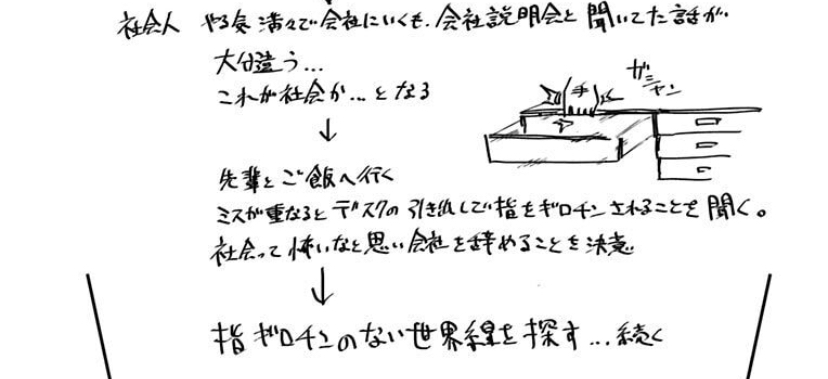 社会人 やる気満々で会社にいくも、会社説明会と聞いてた話が
大分違う…
これが社会か…となる
↓
ガシャン
手
先輩とご飯へ行く
ミスが重なるとデスクの引き出しで指をギロチンされることを聞く。
社会って怖いなと思い会社を辞めることを決意
↓
指ギロチンのない世界線を探す…続く